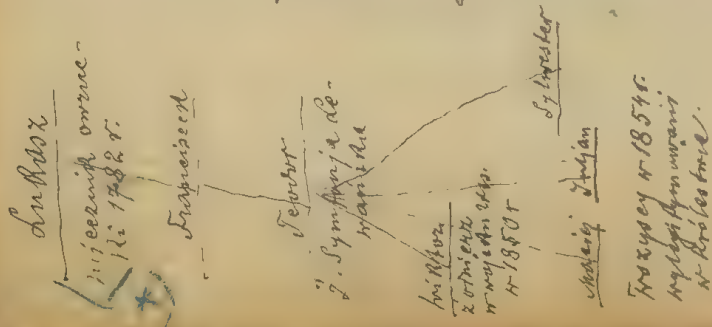 Łukasz
miecznik owruc-
ki 1782 r.
*)
Franciszek
Teodor
ż. Symforja Le-
wańska
Wiktor
żołnierz
w wojsku ros.
w 1850 r
Sylwester
Maciej Juljan
Wszyscy w 1854 r.
wylegitymowani
w Królestwie.